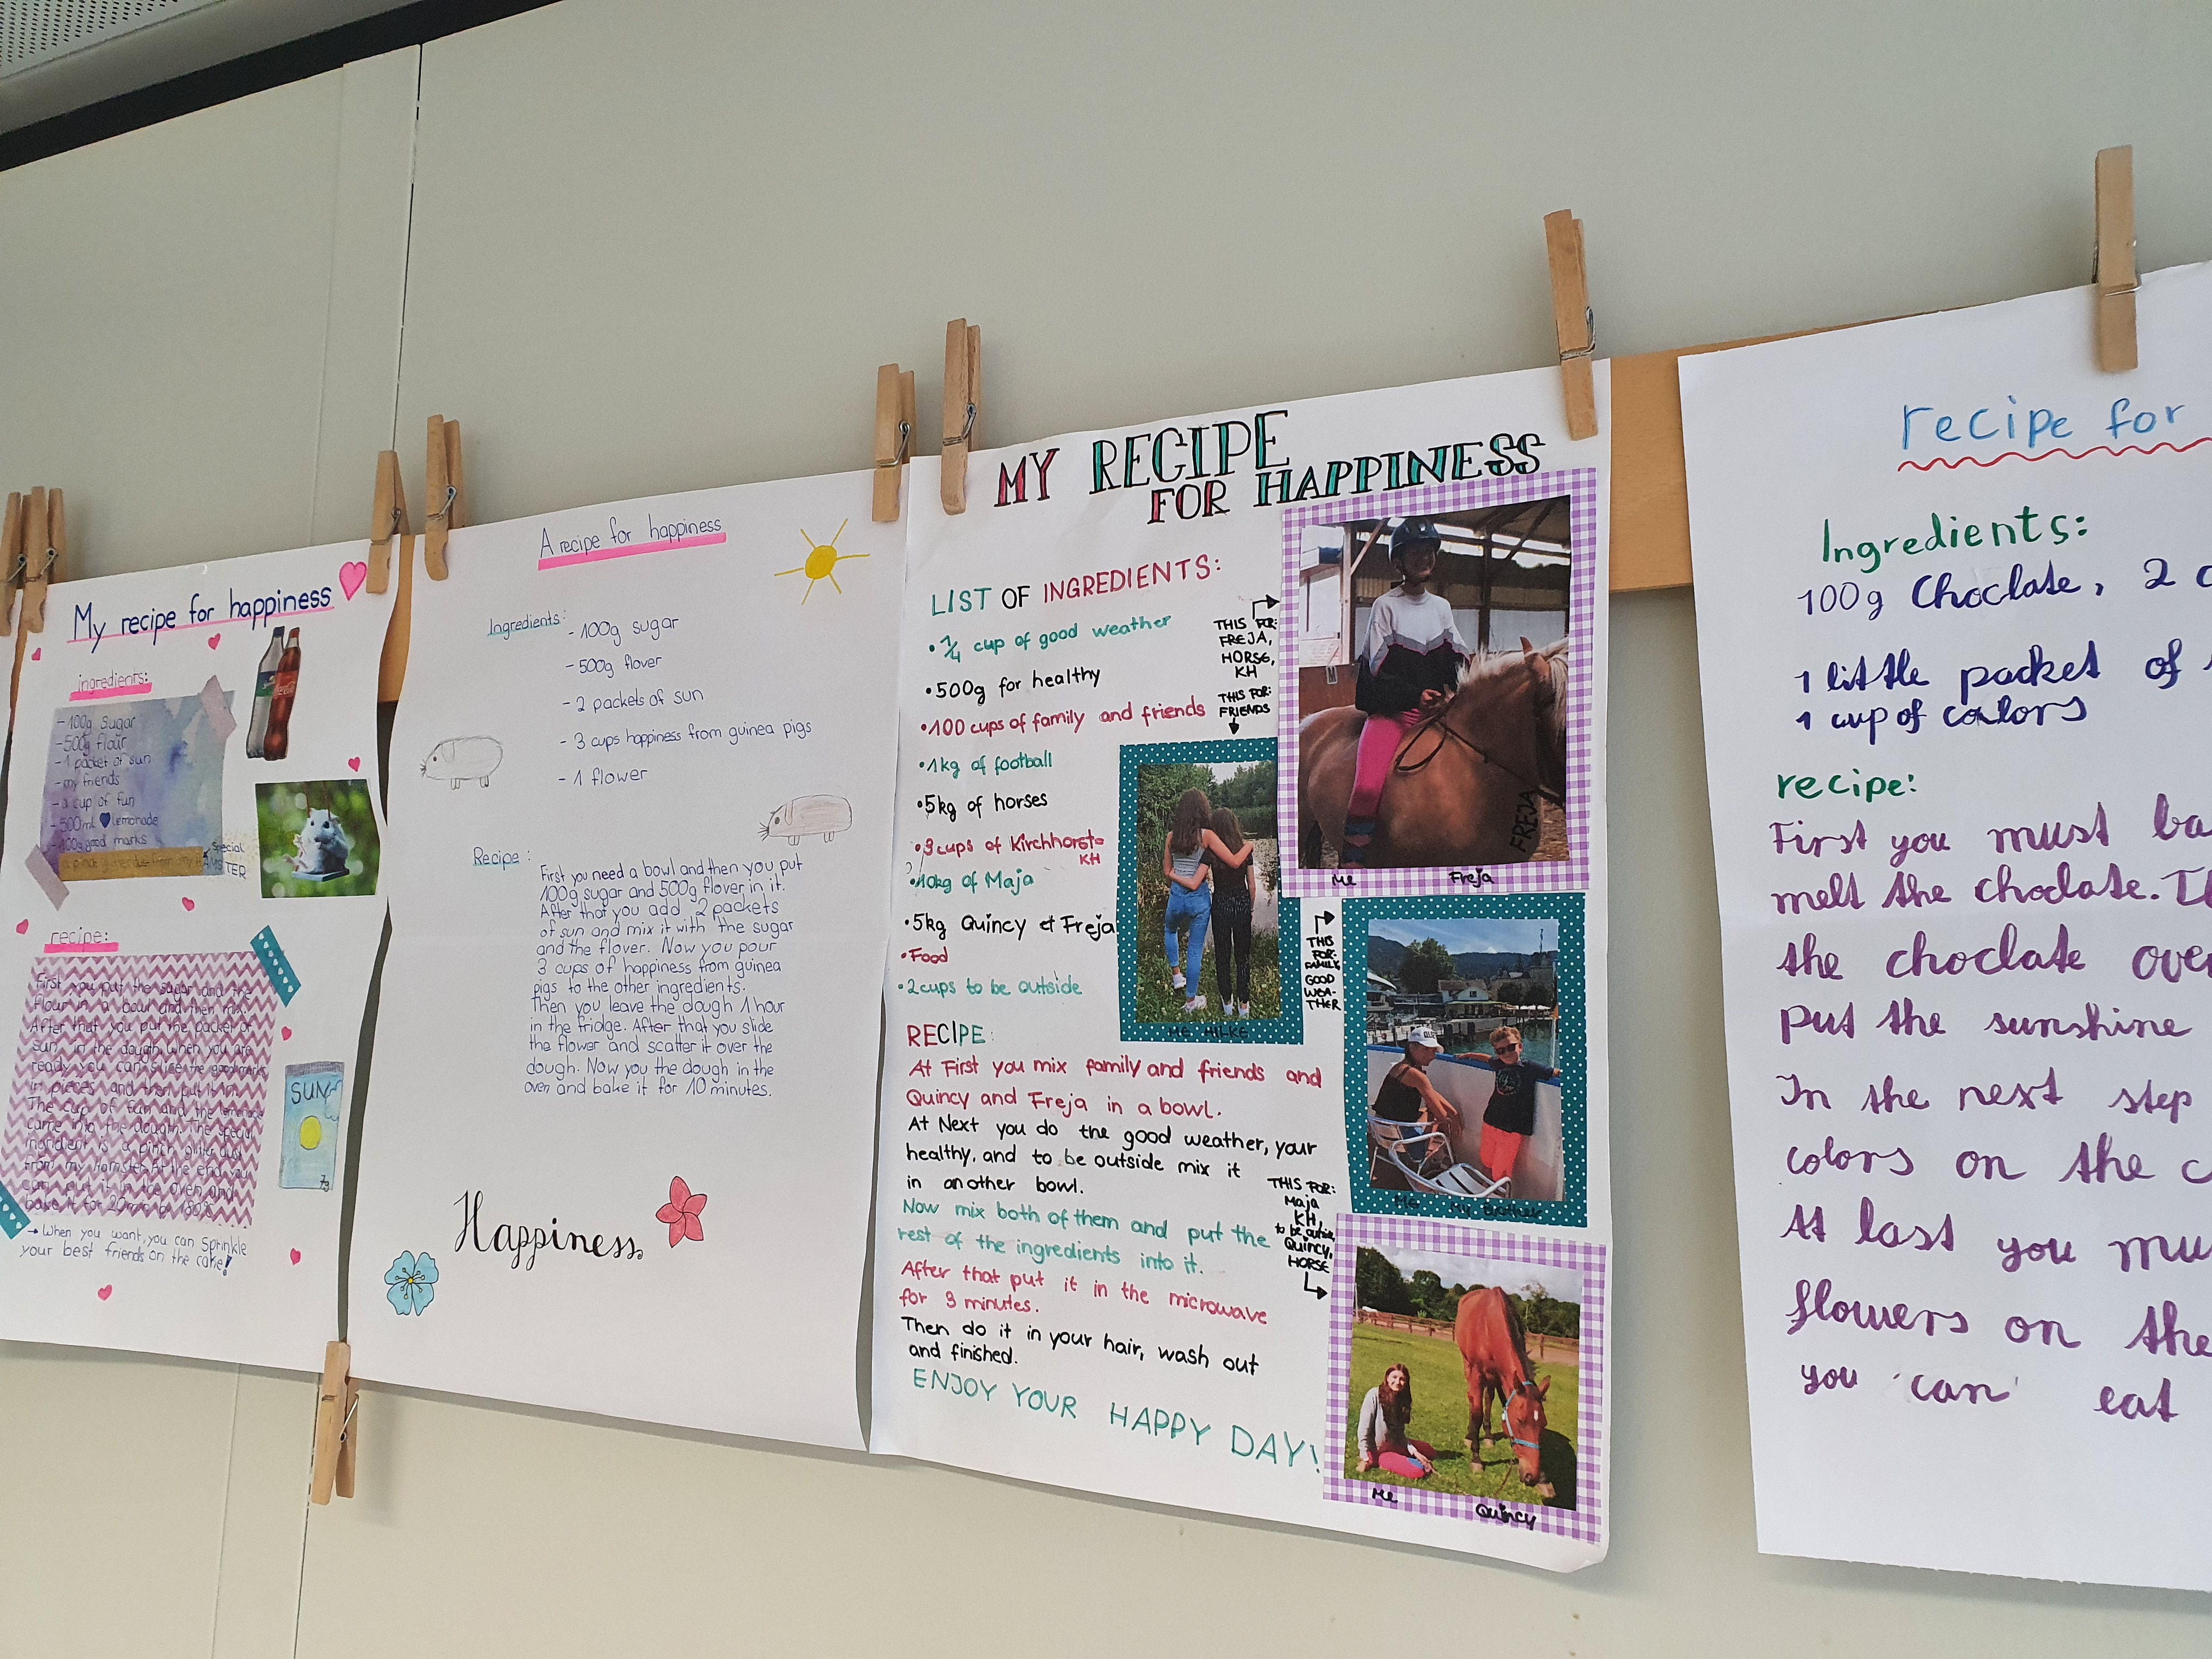 My recipe for happiness
ingredients:
- 100g sugar
- 500g flour
- 1 packet of sun
- my friends
- a cup of fun
- 500ml lemonade
- 100g good marks
special
recipe:
First you put the sugar and the
flour in a bowl and then mix.
After that you put the packet of
sun in the dough. When you are
ready you can slice the good marks
in pieces and then put it in.
The cup of fun and the lemonade
came into the dough. The special
ingridient is a pinch glitter dust
from my Hamster. At the end you
can put it in the oven and
bake it for 20min by 180°C
→ When you want, you can sprinkle
your best friends on the cake!
SUN
7g
A recipe for happiness
Ingredients:
- 100g sugar
- 500g flover
- 2 packets of sun
- 3 cups happiness from guinea pigs
- 1 flower
Recipe:
First you need a bowl and then you put
100g sugar and 500g flover in it.
After that you add 2 packets
of sun and mix it with the sugar
and the flover. Now you pour
3 cups of happiness from guinea
pigs to the other ingredients.
Then you leave the dough 1 hour
in the fridge. After that you slide
the flower and scatter it over the
dough. Now you the dough in the
oven and bake it for 10 minutes.
Happiness.
MY RECIPE
FOR HAPPINESS
LIST OF INGREDIENTS:
• 1/4 cup of good weather
• 500g for healthy
• 100 cups of family and friends
• 1kg of football
• 5kg of horses
• 3 cups of Kirchhorst
KH
• 10kg of Maja
• 5kg Quincy et Freja
• Food
• 2 cups to be outside
THIS FOR:
FREJA,
HORSE,
KH
THIS FOR:
FRIENDS
FREJA
Me Freja
ME HILKE
THIS
FOR:
FAMILY,
GOOD
WEA-
THER
Me My Brother
RECIPE:
At First you mix family and friends and
Quincy and Freja in a bowl.
At Next you do the good weather, your
healthy, and to be outside mix it
in another bowl.
Now mix both of them and put the
rest of the ingredients into it.
After that put it in the microwave
for 3 minutes.
Then do it in your hair, wash out
and finished.
ENJOY YOUR HAPPY DAY!
THIS FOR:
Maja
KH,
to be outside,
Quincy,
HORSE
Me Quincy
recipe for
Ingredients:
100g Choclate, 2 c
1 little packet of
1 cup of colors
recipe:
First you must ba
melt the choclate. T
the choclate over
put the sunshine
In the next step
colors on the c
At last you mu
flowers on the
you can eat